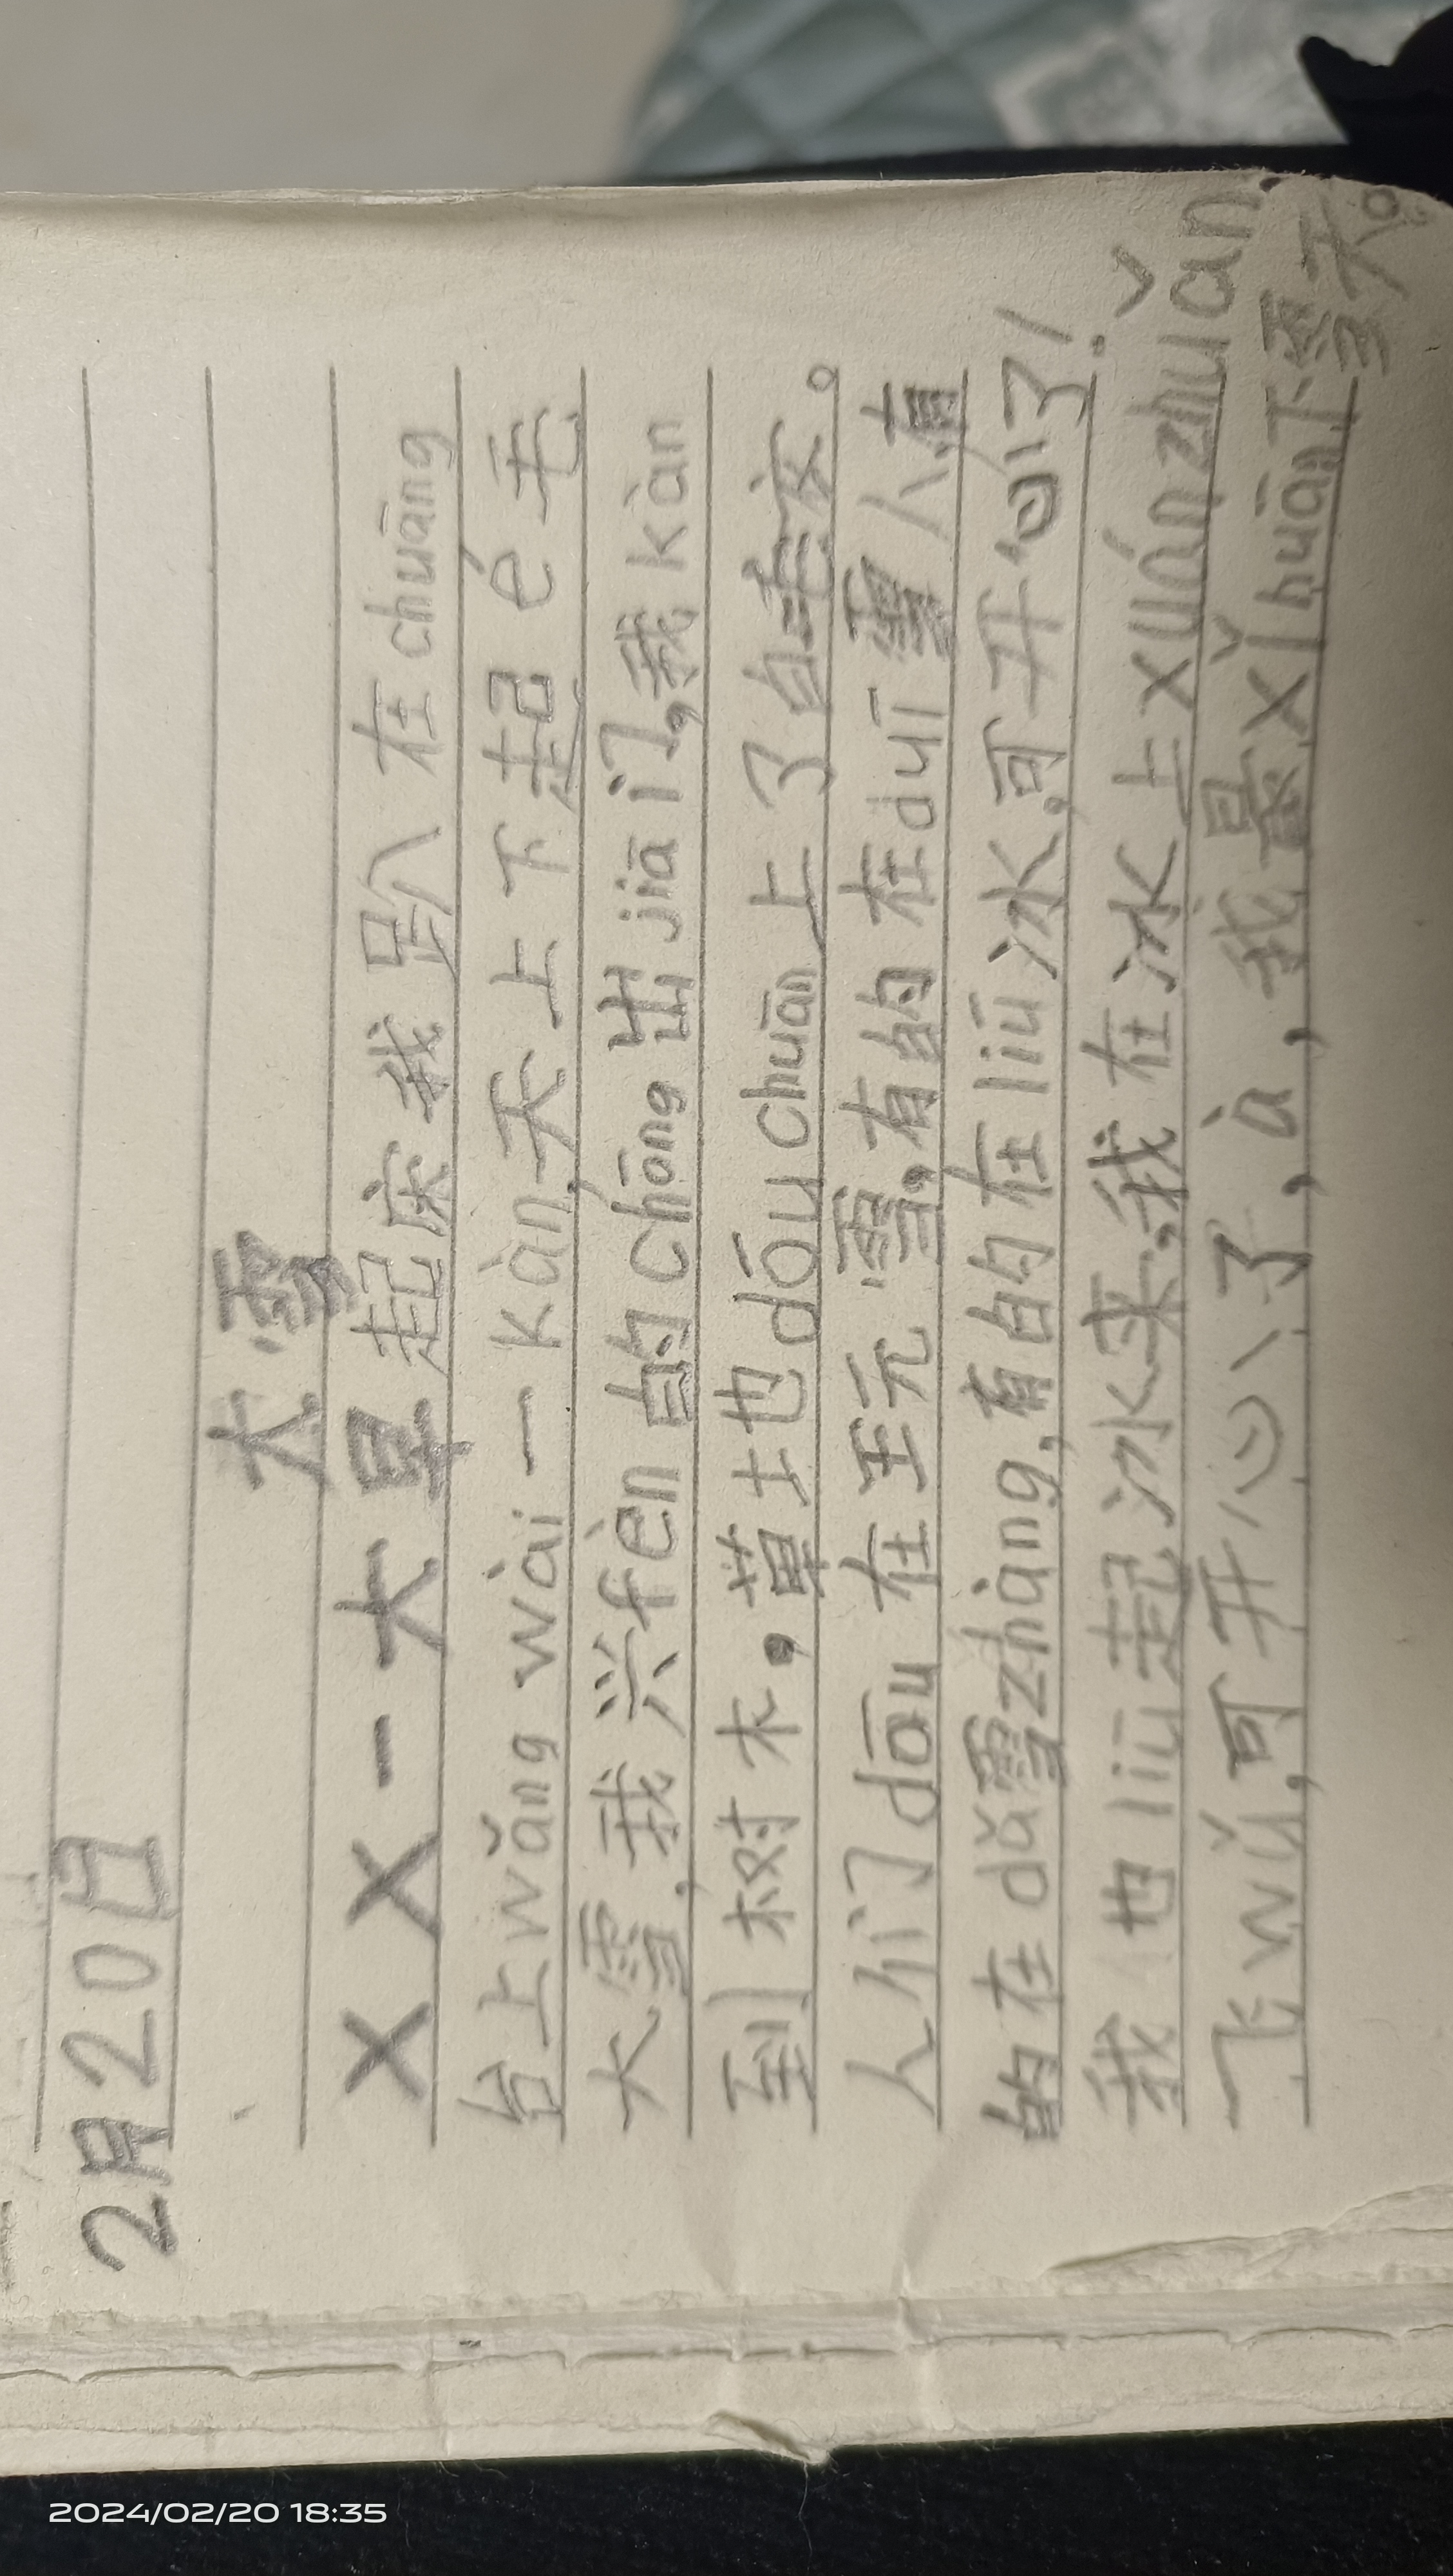 2月20日
大雪
XX一大早起床我趴在chuāng
台上wǎng wài一kàn,天上下起é毛
大雪,我兴fèn的chōng出jiā门,我kàn
到树木。草土也dōu chuān上了白毛衣。
人们dōu在玩雪,有的在duī雪人,有
的在dǎ雪zhàng,有的在liū冰,可开心了!
我也liū起冰来,我在冰上xuán zhuǎn,
飞wǔ,可开心了,à,我最xǐ huān下雪天。
2024/02/20 18:35